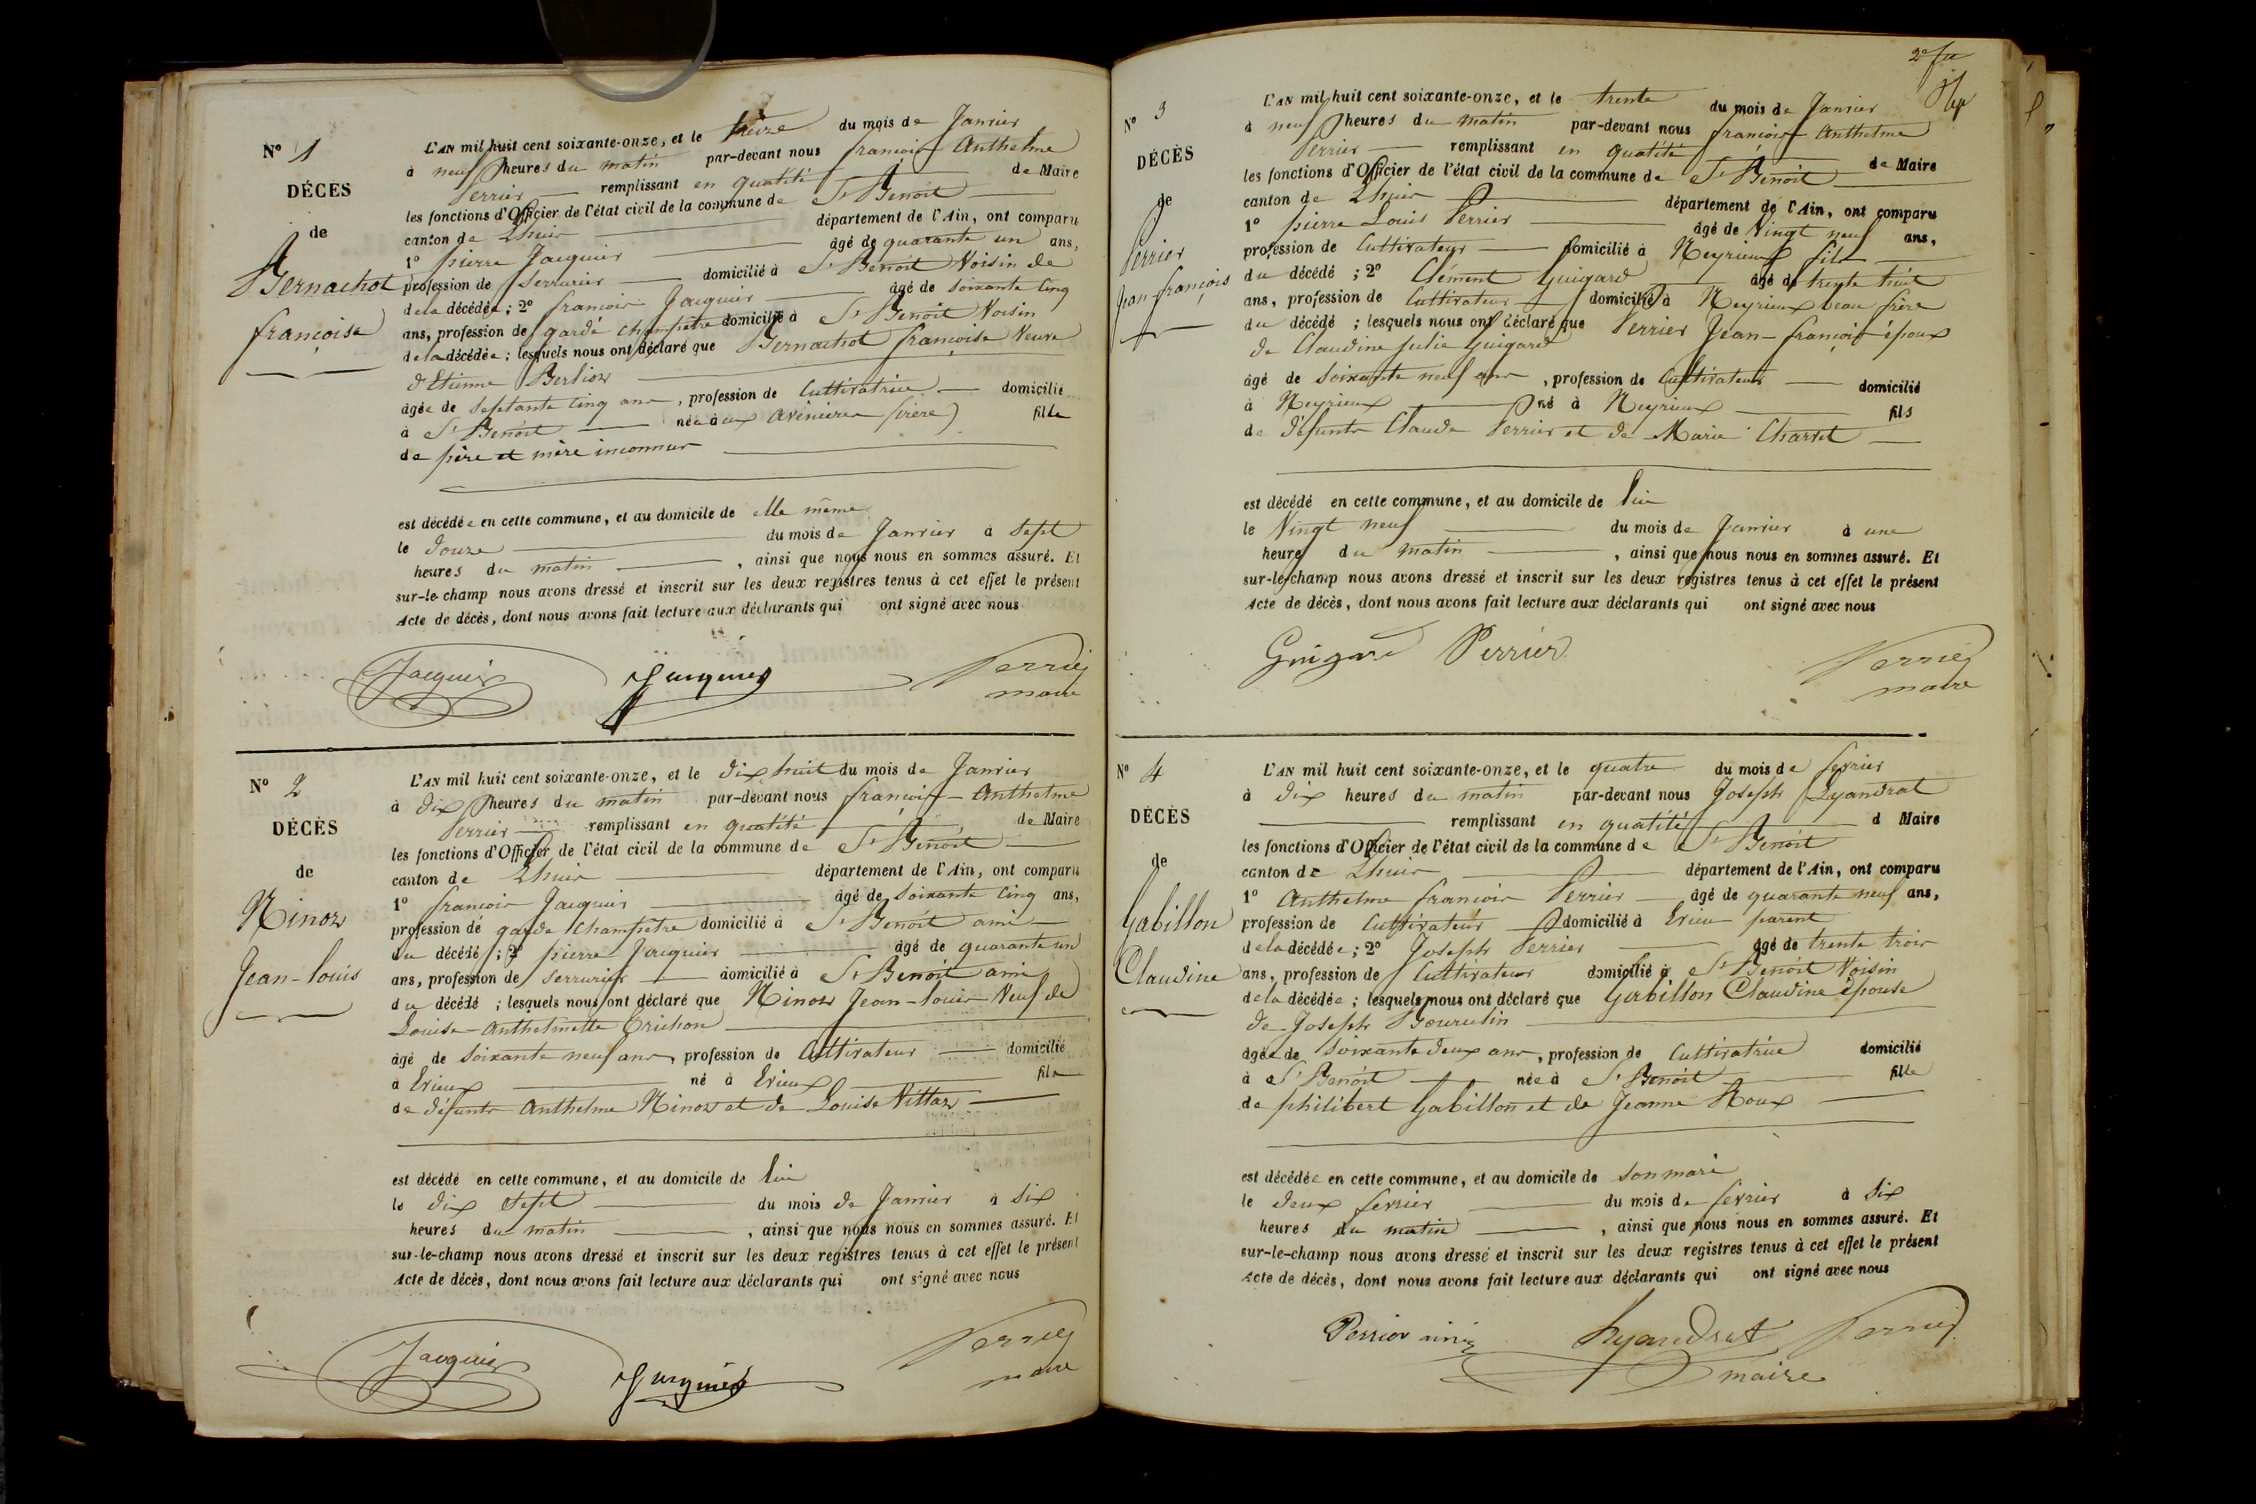 N° 1
DÉCÈS
de
Bernachot
françoise
L'AN mil huit cent soixante-onze, et le treize du mois de Janvier
à neuf heures du matin par-devant nous françois Anthelme
Perrier remplissant en qualité de Maire
les fonctions d'Officier de l'état civil de la commune de St Benoit
canton de Lhuis département de l'Ain, ont comparu
1° pierre Jacquier âgé de quarante un ans,
profession de Serrurier domicilié à St Benoit Voisin de
de la décédée ; 2° françois Jacquier âgé de soixante cinq
ans, profession de garde champêtre domicilié à St Benoit Voisin
de la décédée ; lesquels nous ont déclaré que Bernachot françoise Veuve
d'Etienne Berlioz
âgée de septante cinq ans, profession de Cultivatrice domicilié
à St Benoit née à aux Avenieres (isère) fille
de père et mère inconnus
est décédée en cette commune, et au domicile de elle même
le douze du mois de Janvier à sept
heures du matin, ainsi que nous nous en sommes assuré. Et
sur-le-champ nous avons dressé et inscrit sur les deux registres tenus à cet effet le présent
Acte de décès, dont nous avons fait lecture aux déclarants qui ont signé avec nous
Jacquier Jacquier Perrier
maire
N° 2
DÉCÈS
de
Ninoz
Jean-louis
L'AN mil huit cent soixante-onze, et le dix huit du mois de Janvier
à dix heures du matin par-devant nous françois Anthelme
Perrier remplissant en qualité de Maire
les fonctions d'Officier de l'état civil de la commune de St Benoit
canton de Lhuis département de l'Ain, ont comparu
1° françois Jacquier âgé de soixante cinq ans,
profession de garde champêtre domicilié à St Benoit ami
du décédé ; 2° pierre Jacquier âgé de quarante un
ans, profession de serrurier domicilié à St Benoit ami
du décédé ; lesquels nous ont déclaré que Ninoz Jean-louis Veuf de
Louise Anthelmette Trichon
âgé de soixante neuf ans, profession de Cultivateur domicilié
à Erieux né à Erieux fils
de défunts Anthelme Ninoz et de Louise Vittoz
est décédé en cette commune, et au domicile de lui
le dix sept du mois de Janvier à six
heures du matin, ainsi que nous nous en sommes assuré. Et
sur-le-champ nous avons dressé et inscrit sur les deux registres tenus à cet effet le présent
Acte de décès, dont nous avons fait lecture aux déclarants qui ont signé avec nous
Jacquier Jacquier Perrier
maire
N° 3
DÉCÈS
de
Perrier
Jean françois
L'AN mil huit cent soixante-onze, et le trente du mois de Janvier
à neuf heures du matin par-devant nous françois Anthelme
Perrier remplissant en qualité de Maire
les fonctions d'Officier de l'état civil de la commune de St Benoit
canton de Lhuis département de l'Ain, ont comparu
1° pierre Louis Perrier âgé de Vingt neuf ans,
profession de Cultivateur domicilié à Neyrieux fils
du décédé ; 2° Clément Guigard âgé de trente huit
ans, profession de Cultivateur domicilié à Neyrieux beau frère
du décédé ; lesquels nous ont déclaré que Perrier Jean-françois époux
de Claudine Julie Guigard
âgé de soixante neuf ans, profession de Cultivateur domicilié
à Neyrieux né à Neyrieux fils
de défunts Claude Perrier et de Marie Charvet
est décédé en cette commune, et au domicile de lui
le Vingt neuf du mois de Janvier à une
heure du matin, ainsi que nous nous en sommes assuré. Et
sur-le-champ nous avons dressé et inscrit sur les deux registres tenus à cet effet le présent
Acte de décès, dont nous avons fait lecture aux déclarants qui ont signé avec nous
Guigard Perrier Perrier
maire
N° 4
DÉCÈS
de
Gabillon
Claudine
L'AN mil huit cent soixante-onze, et le quatre du mois de fevrier
à dix heures du matin par-devant nous Joseph Lyandrat
remplissant en qualité d Maire
les fonctions d'Officier de l'état civil de la commune de St Benoit
canton de Lhuis département de l'Ain, ont comparu
1° Anthelme françois Perrier âgé de quarante neuf ans,
profession de Cultivateur domicilié à Erieu parent
de la décédée ; 2° Joseph Perrier âgé de trente trois
ans, profession de Cultivateur domicilié à St Benoit Voisin
de la décédée ; lesquels nous ont déclaré que Gabillon Claudine épouse
de Joseph Bourulin
âgée de soixante deux ans, profession de Cultivatrice domicilié
à St Benoit née à St Benoit fille
de philibert Gabillon et de Jeanne Roux
est décédée en cette commune, et au domicile de son mari
le deux fevrier du mois de fevrier à six
heures du matin, ainsi que nous nous en sommes assuré. Et
sur-le-champ nous avons dressé et inscrit sur les deux registres tenus à cet effet le présent
Acte de décès, dont nous avons fait lecture aux déclarants qui ont signé avec nous
Perrier Lyandrat Perrier
maire